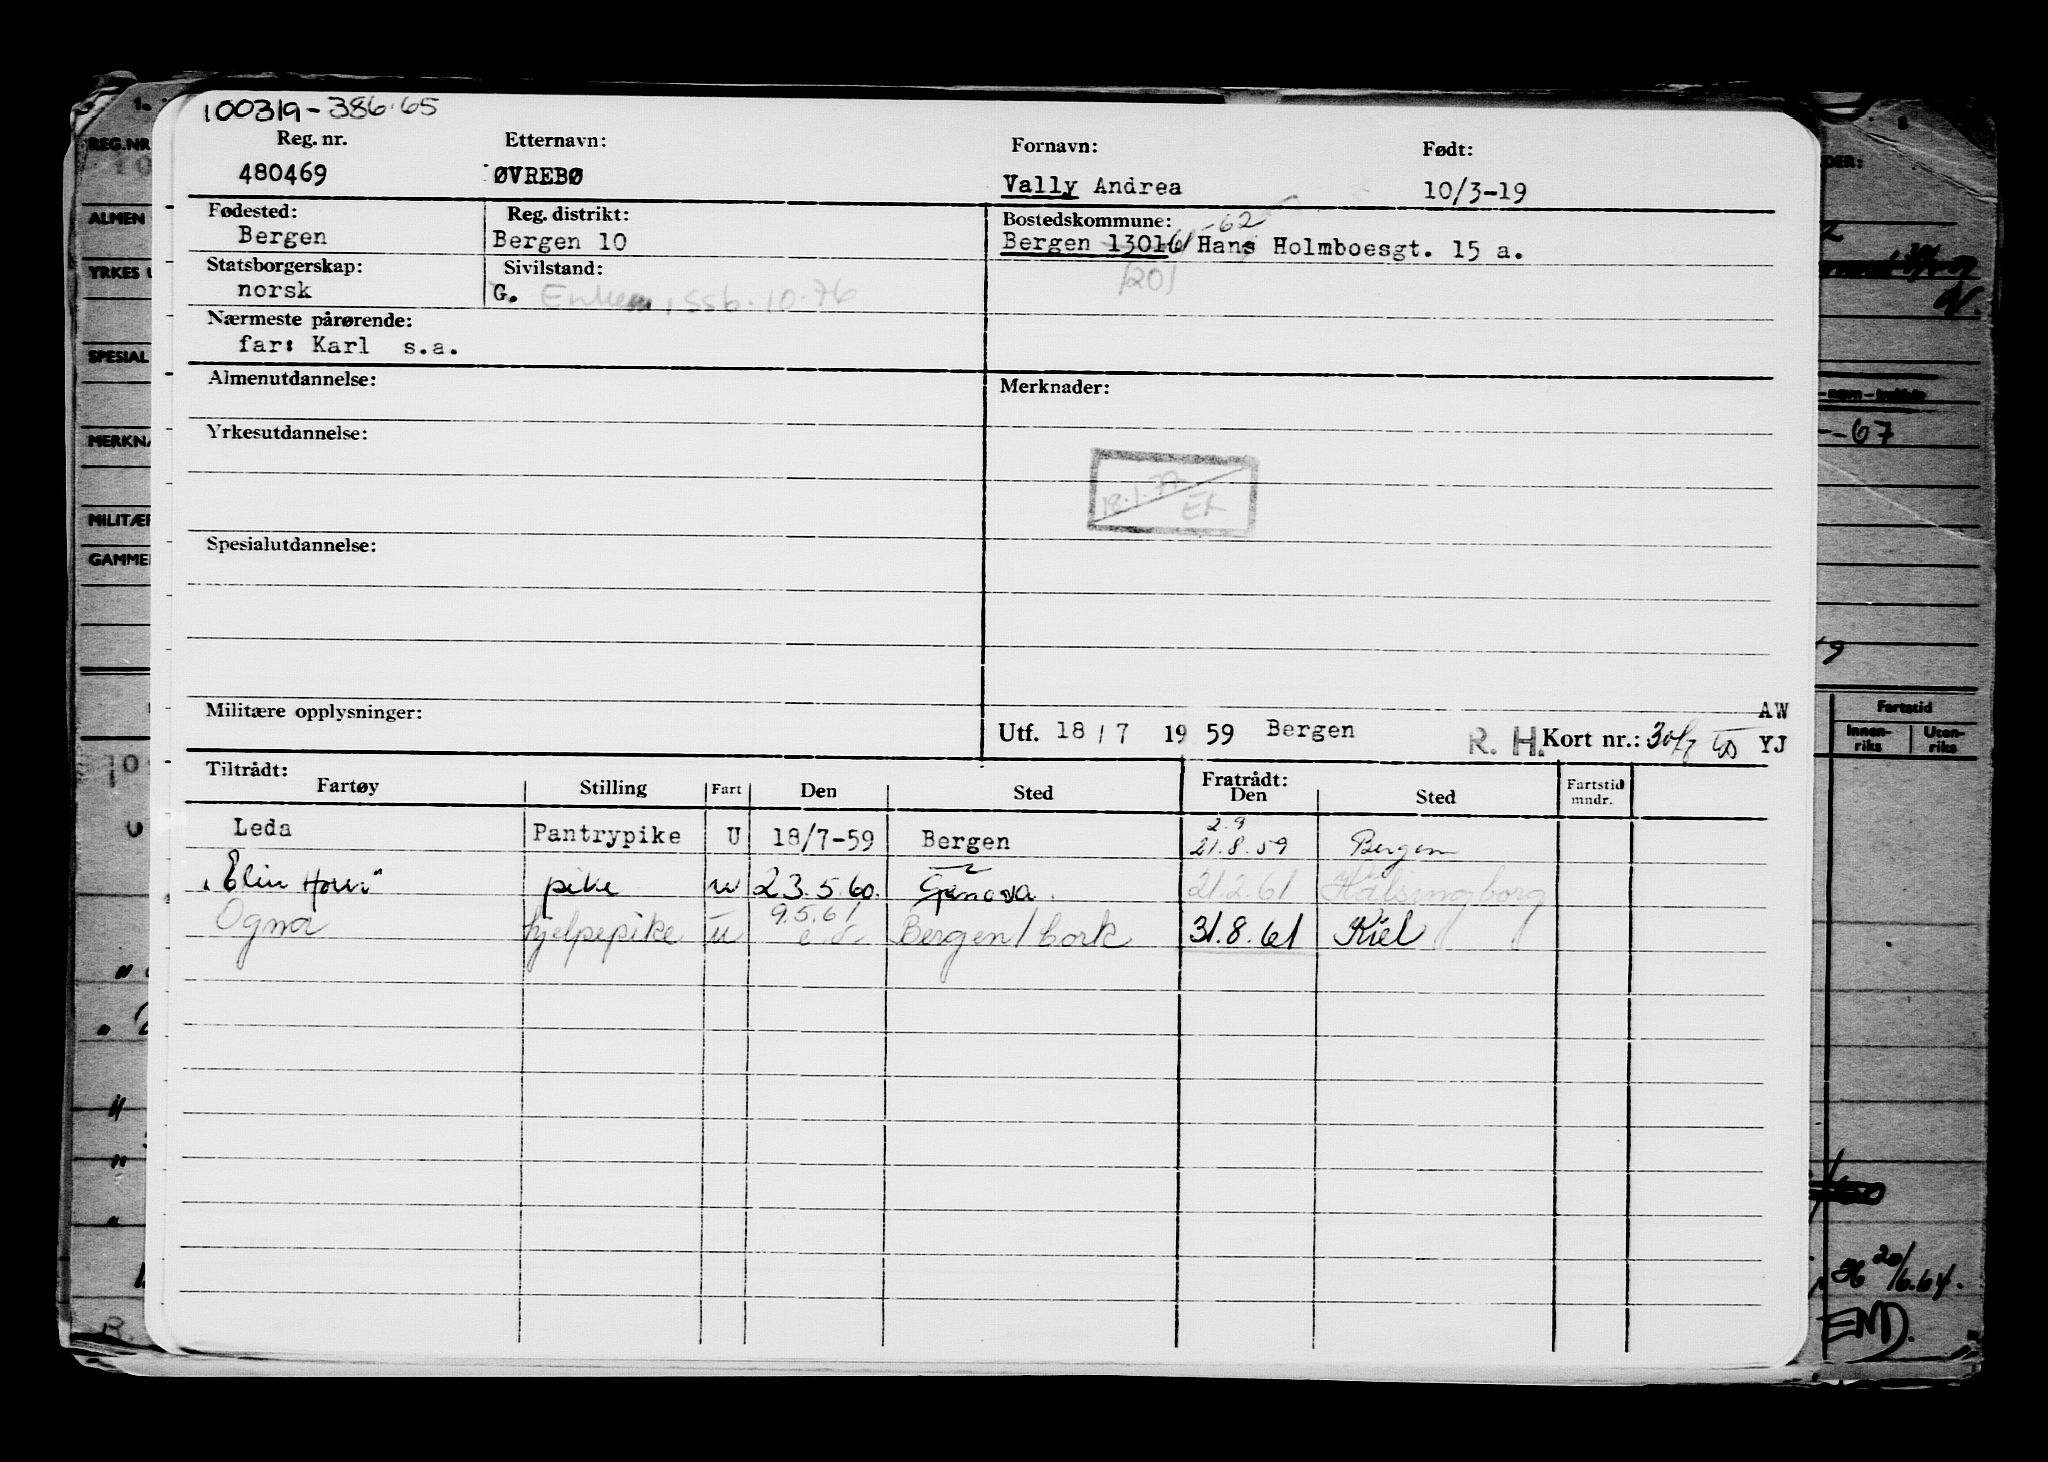 100319-386.65
Reg. nr. Etternavn: Fornavn: Født:
480469 ØVREBØ Vally Andrea 10/3-19
Fødested: Reg. distrikt: Bostedskommune: -62
Bergen Bergen 10 Bergen 1301 Hans Holmboesgt. 15 a.
Statsborgerskap: Sivilstand: 1201
norsk G. 10.76
Nærmeste pårørende:
far: Karl s.a.
Almenutdannelse: Merknader:
Yrkesutdannelse:
18.1.77
EK
Spesialutdannelse:
Militære opplysninger: Utf. 18/7 1959 Bergen R. H. Kort nr.: AW YJ
Tiltrådt: Fratrådt:
Fartøy Stilling Fart Den Sted Den Sted Fartstid mndr.
Leda Pantrypike U 18/7-59 Bergen 2.9 21.8.59 Bergen
"Elin Horn" pike u 23.5.60. Genova 21.2.61 Hälsingborg
Ogna hjelpepike u 9.5.61 Bergen/bork 31.8.61 Kiel
REG.NR
ALMEN
YRKES U
SPESIAL
MERKNA
MILITÆR
GAMMEL
DER:
-67
Fartstid
Innen-riks Uten-riks
56 20/6.64.
END.